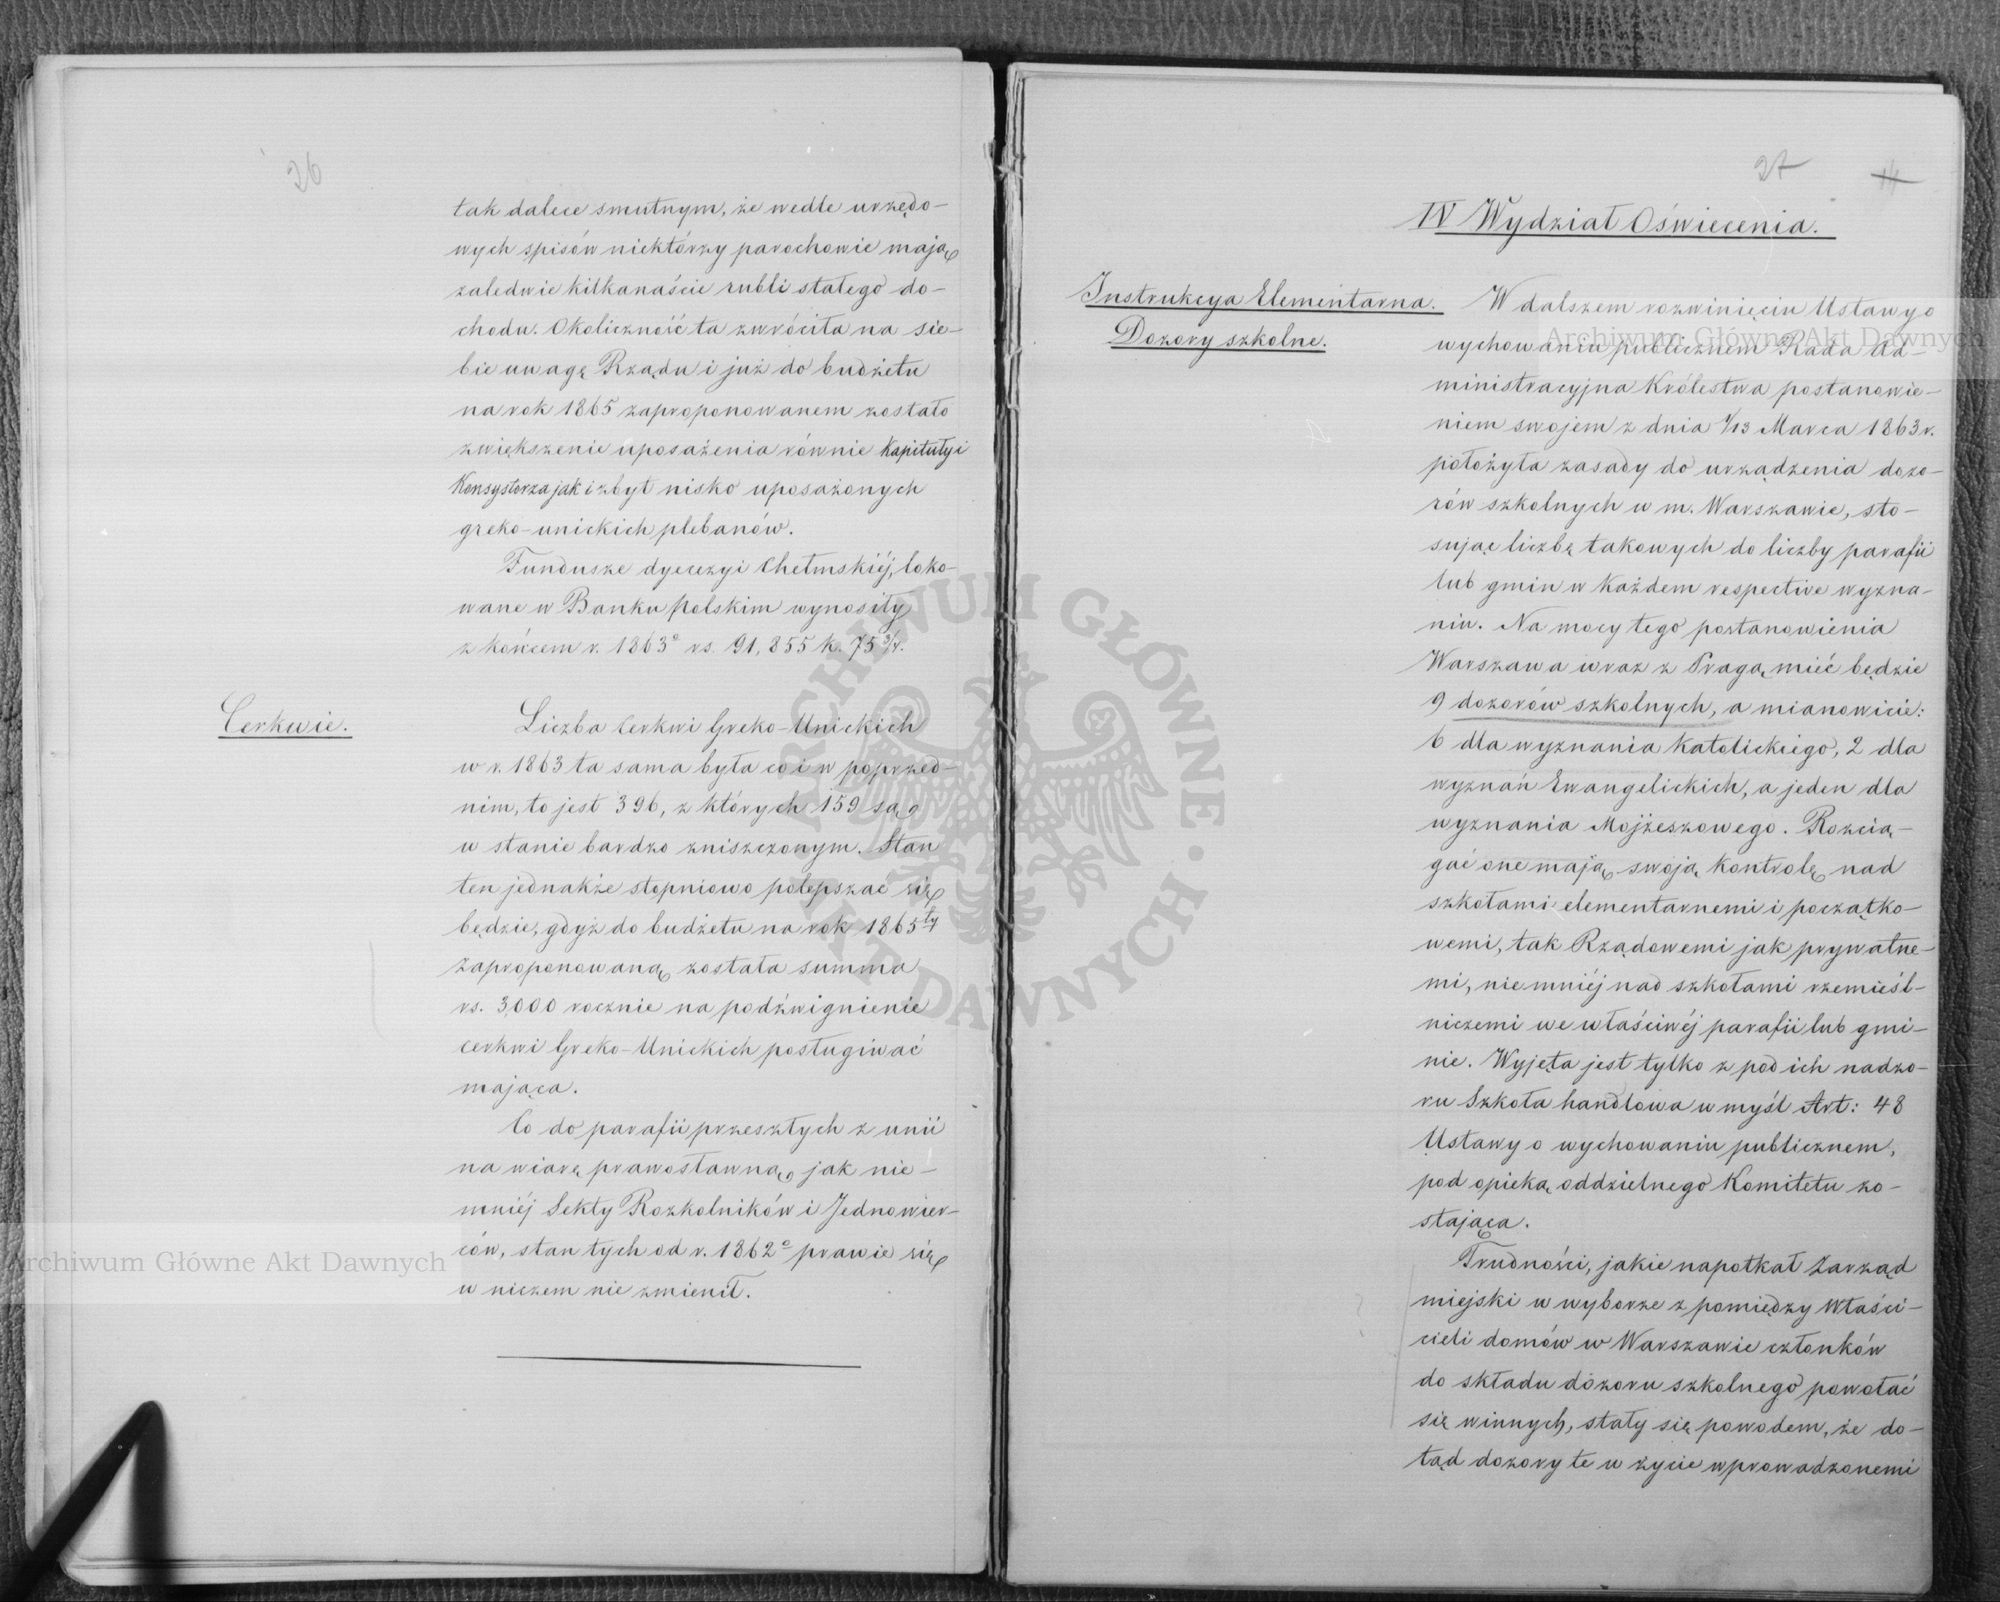 26
tak dalece smutnym, że wedle urzędo-
wych spisów niektórzy parochowie mają
zaledwie kilkanaście rubli stałego do-
chodu. Okoliczność ta zwróciła na sie-
bie uwagę Rządu i już do budżetu
na rok 1865 zaproponowanem zostało
zwiększenie uposażenia równie Kapituły i
Konsystorza jak i zbyt nisko uposażonych
greko-unickich plebanów.
Fundusze dyecezyi Chełmskiéj, loko-
wane w Banku Polskim wynosiły
z końcem r. 1863º rs. 91,855 k. 75 3/4.
Cerkwie.
Liczba Cerkwi Greko-Unickich
w r. 1863 ta sama była co i w poprzed-
nim, to jest 396, z których 159 są
w stanie bardzo zniszczonym. Stan
ten jednakże stopniowo polepszać się
będzie, gdyż do budżetu na rok 1865ty
zaproponowaną została summa
rs. 3,000 rocznie na podźwignienie
cerkwi Greko-Unickich posługiwać
mająca.
Co do parafii przeszłych z unii
na wiarę prawosławną, jak nie-
mniéj Sekty Rozkolników i Jednowier-
ców, stan tych od r. 1862º prawie się
w niczem nie zmienił.
27
14
IV Wydział Oświecenia.
Instrukcya Elementarna.
Dozory szkolne.
W dalszem rozwinięciu Ustawy o
wychowaniu publicznem Rada Ad-
ministracyjna Królestwa postanowie-
niem swojem z dnia 1/13 Marca 1863 r.
położyła zasady do urządzenia dozo-
rów szkolnych w m. Warszawie, sto-
sując liczbę takowych do liczby parafii
lub gmin w każdem respective wyzna-
niu. Na mocy tego postanowienia
Warszawa wraz z Pragą mieć będzie
9 dozorów szkolnych, a mianowicie:
6 dla wyznania Katolickiego, 2 dla
wyznań Ewangelickich, a jeden dla
wyznania Mojżeszowego. Rozcią-
gać one mają swoją kontrolę nad
szkołami elementarnemi i początko-
wemi, tak Rządowemi jak prywatne-
mi, niemniéj nad szkołami rzemieśl-
niczemi we właściwéj parafii lub gmi-
nie. Wyjęta jest tylko z pod ich nadzo-
ru Szkoła handlowa w myśl Art: 48
Ustawy o wychowaniu publicznem,
pod opieką oddzielnego Komitetu zo-
stająca.
Trudności, jakie napotkał Zarząd
miejski w wyborze z pomiędzy właści-
cieli domów w Warszawie członków
do składu dozoru szkolnego powołać
się winnych, stały się powodem, że do-
tąd dozory te w życie wprowadzonemi
Archiwum Główne Akt Dawnych
Archiwum Główne Akt Dawnych
ARCHIWUM GŁÓWNE AKT DAWNYCH